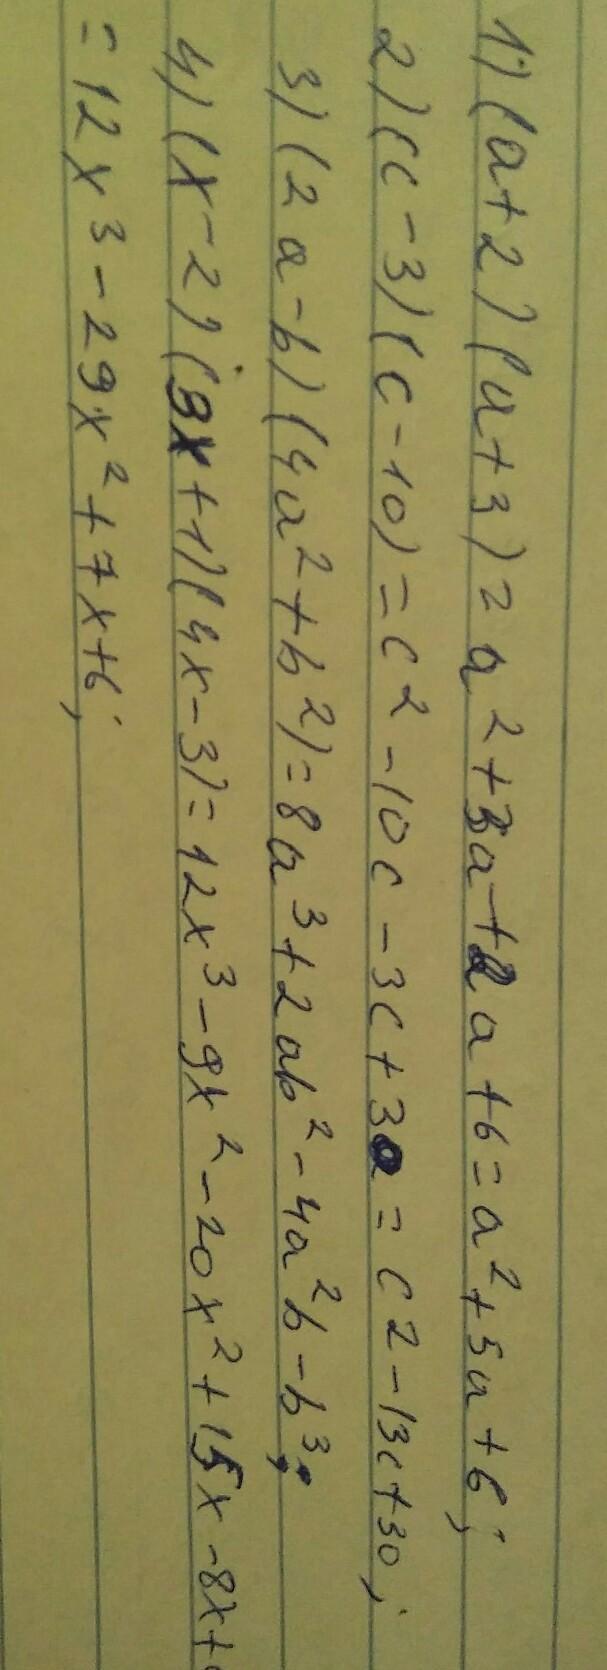 1) (a+2)(a+3)=a²+3a+2a+6=a²+5a+6;
2) (c-3)(c-10)=c²-10c-3c+30=c²-13c+30;
3) (2a-b)(4a²+b²)=8a³+2ab²-4a²b-b³;
4) (x-2)(3x+1)(4x-3)=12x³-9x²-20x²+15x-8x+
=12x³-29x²+7x+6;